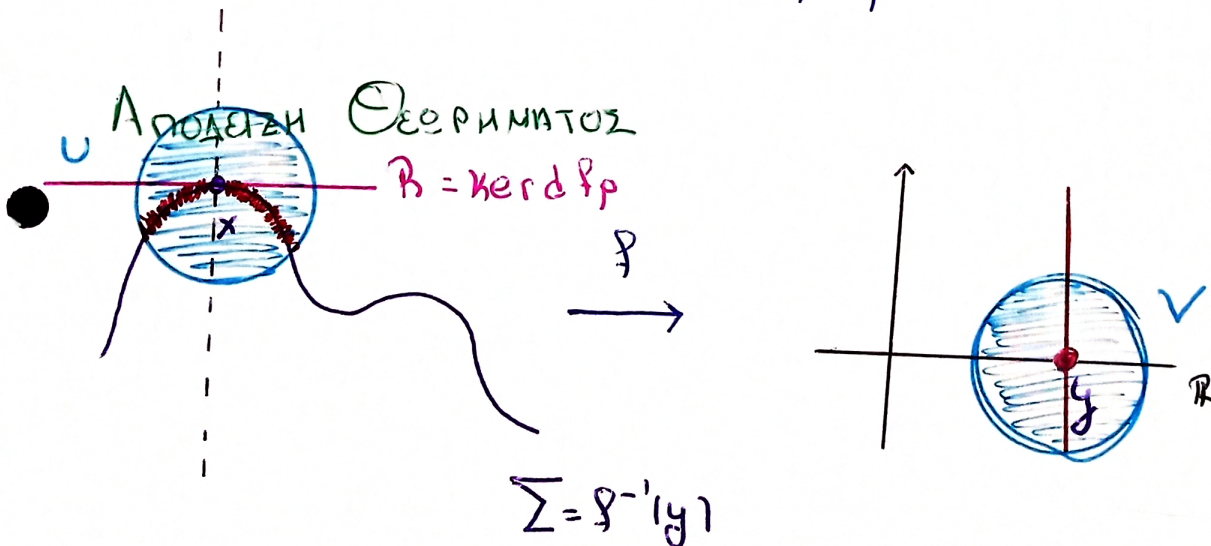 ΑΠΟΔΕΙΞΗ ΘΕΩΡΗΜΑΤΟΣ
U
R = kerdfp
x
f
V
y
R
Σ = f⁻¹(y)